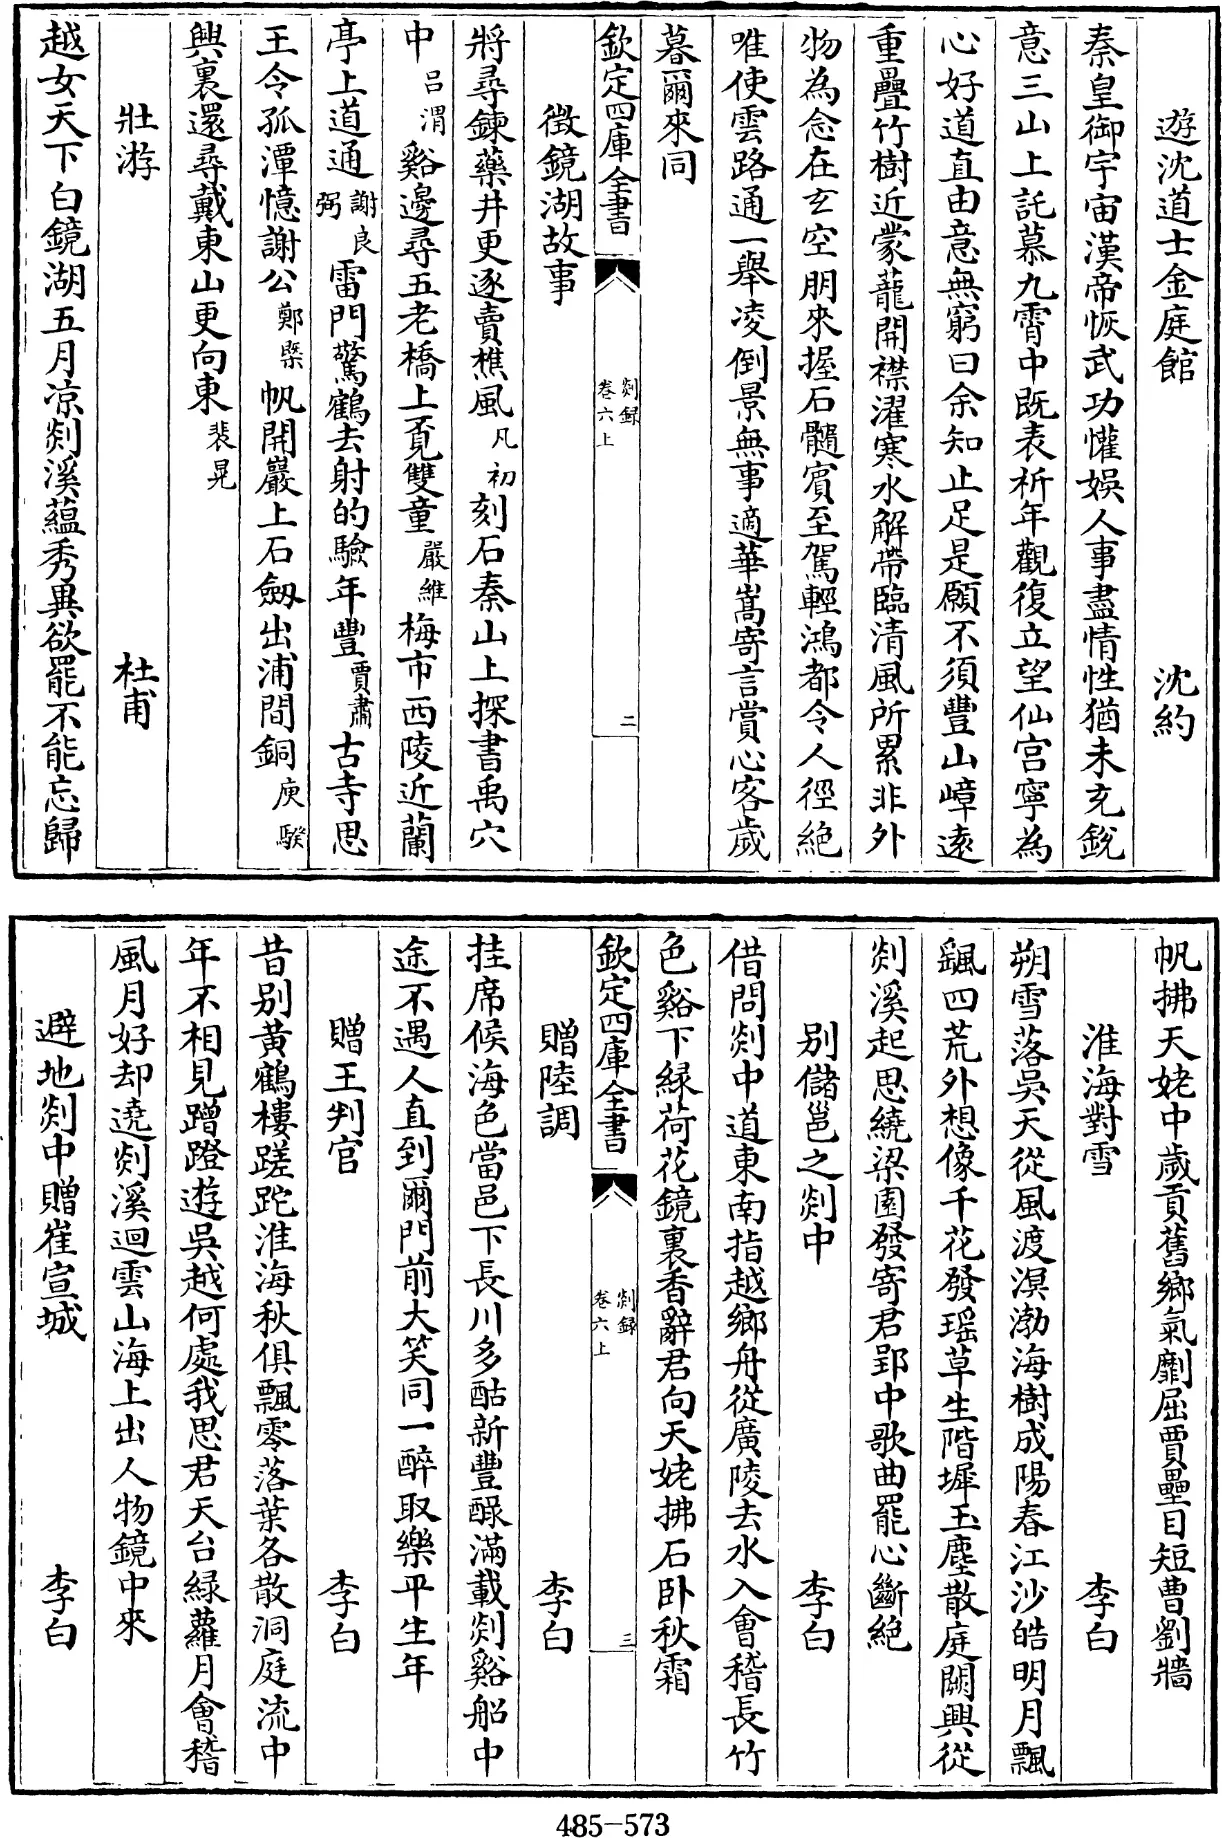 遊沈道士金庭館 沈約
秦皇御宇宙漢帝恢武功懽娛人事盡情性猶未充銳
意三山上託慕九霄中既表祈年觀復立望仙宮寧為
心好道直由意無窮曰余知止足是願不須豐山嶂遠
重疊竹樹近蒙蘢開襟濯寒水解帶臨清風所累非外
物為念在玄空朋來握石髓賓至駕輕鴻都令人徑絕
唯使雲路通一舉凌倒景無事適華嵩寄言賞心客歲
暮爾來同
欽定四庫全書 剡録 卷六上 二
徵鏡湖故事
將尋鍊藥井更逐賣樵風凡初刻石秦山上探書禹穴
中呂渭谿邊尋五老橋上覓雙童嚴維梅市西陵近蘭
亭上道通謝良弼雷門驚鶴去射的驗年豐賈肅古寺思
王令孤潭憶謝公鄭槩帆開巖上石劒出浦間銅庾騤
興裏還尋戴東山更向東裴晃
壯游 杜甫
越女天下白鏡湖五月凉剡溪蘊秀異欲罷不能忘歸
帆拂天姥中歲貢舊鄉氣劘屈賈壘目短曹劉牆
淮海對雪 李白
朔雪落吳天從風渡溟渤海樹成陽春江沙皓明月飄
颻四荒外想像千花發瑶草生階墀玉塵散庭闕興從
剡溪起思繞梁園發寄君郢中歌曲罷心斷絕
别儲邕之剡中 李白
借問剡中道東南指越鄉舟從廣陵去水入會稽長竹
色谿下緑荷花鏡裏香辭君向天姥拂石卧秋霜
欽定四庫全書 剡録 卷六上 三
贈陸調 李白
挂席候海色當邑下長川多酤新豐醁滿載剡谿船中
途不遇人直到爾門前大笑同一醉取樂平生年
贈王判官 李白
昔别黃鶴樓蹉跎淮海秋俱飄零落葉各散洞庭流中
年不相見蹭蹬遊吳越何處我思君天台緑蘿月會稽
風月好却遶剡溪迴雲山海上出人物鏡中來
避地剡中贈崔宣城 李白
485-573